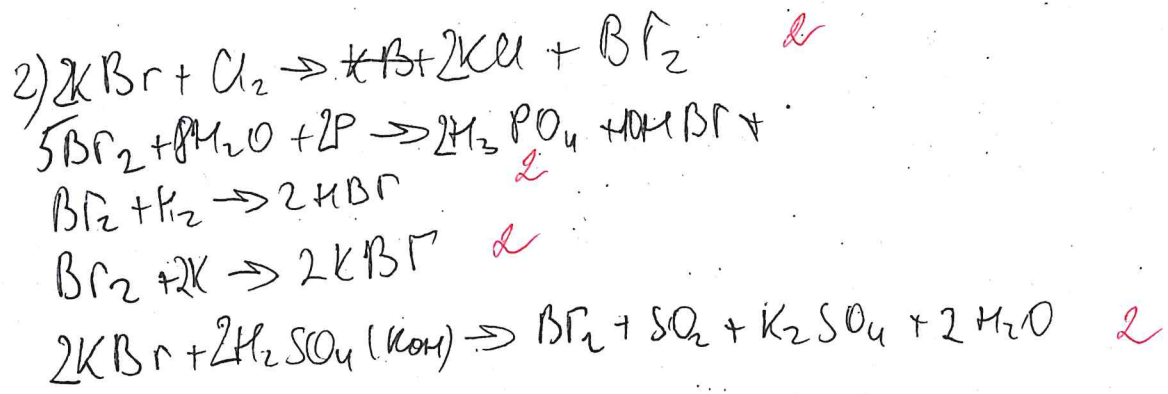 2) 2KBr + Cl₂ → 2KCl + Br₂ 2
5Br₂ + 8H₂O + 2P → 2H₃PO₄ + 10HBr +
Br₂ + H₂ → 2HBr 2
Br₂ + 2K → 2KBr 2
2KBr + 2H₂SO₄ (конц) → Br₂ + SO₂ + K₂SO₄ + 2H₂O 2